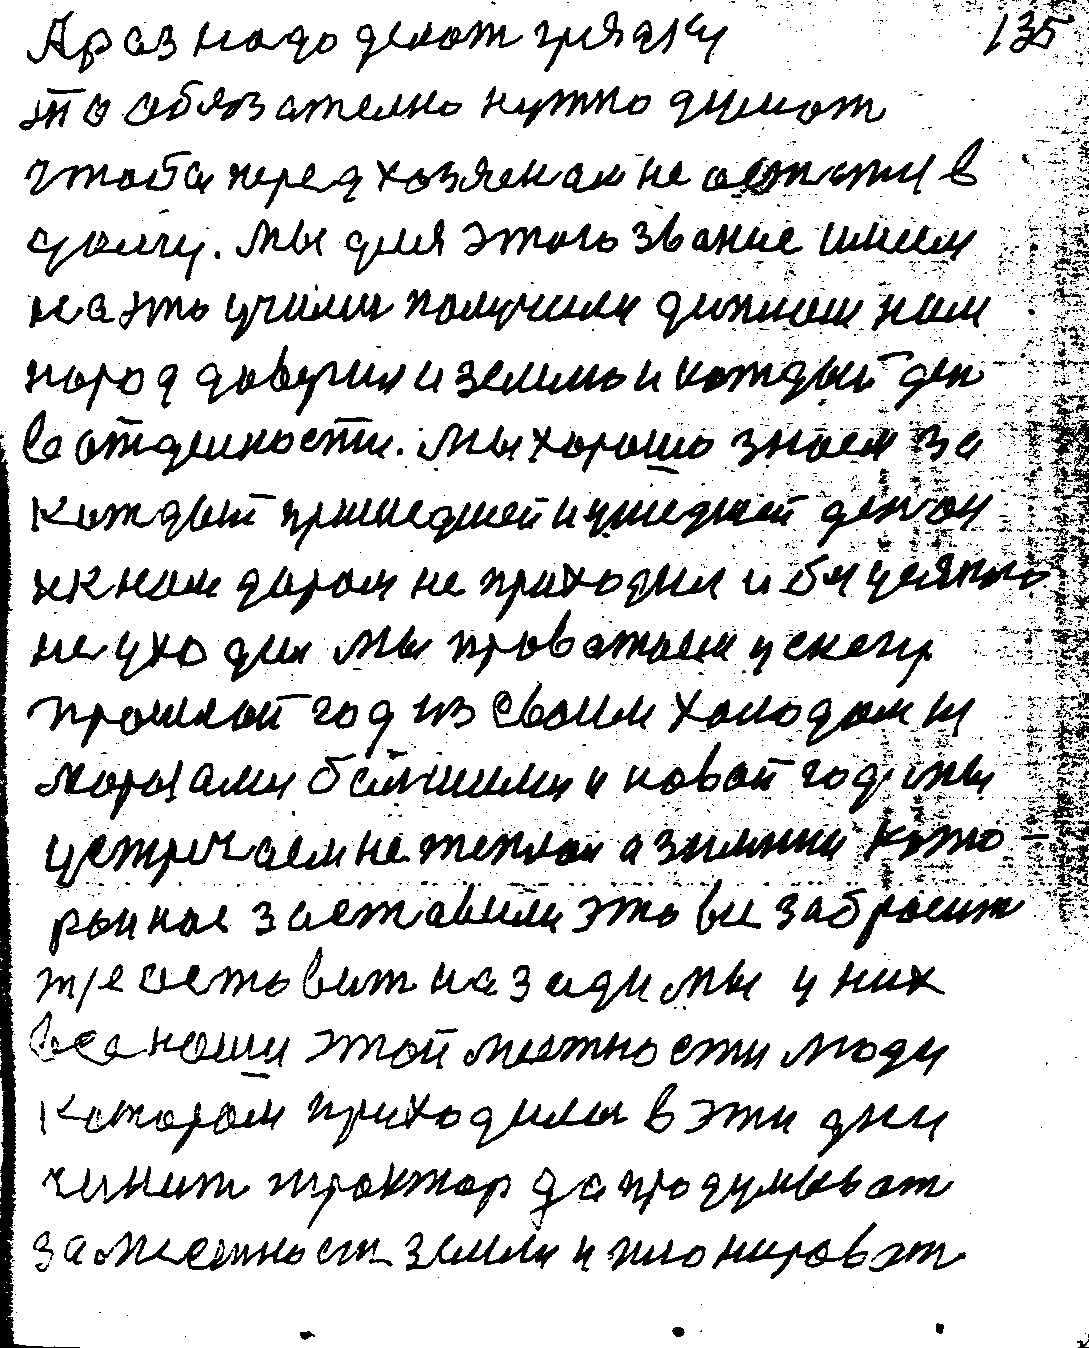 А раз надо делат грядку 135
то обязателно нужно думат
чтоба перед хозяенам не остати в
долгу. мы для этого звание имеем
на это учили получили диплом нам
народ доверил и землю и каждый ден
в отделности. мы хорошо знаем за
каждый пришедшей и ушедшей ден он
ик нам даром не приходил и без
не уходил мы провожаем у снегу
прошлой год из своим холодам и
морозами болшими и новой год мы
устречаем не теплом а зимнии кото
раи нас заставили это все забросит
оставит назади мы у них
все наши этой местности люди
котором приходили в эти дни
чинит трактор да продумыват
за местност земли и планироват